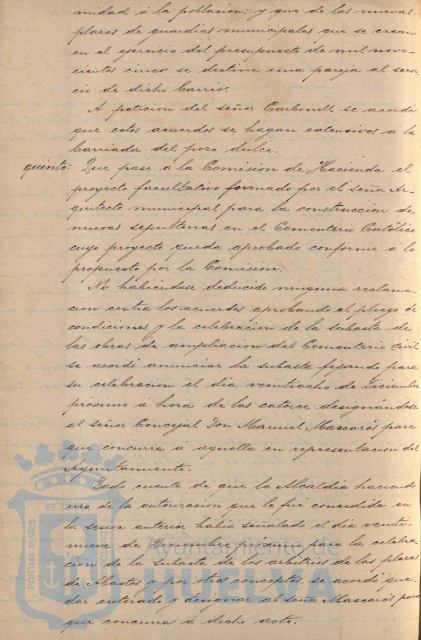 nidad á la poblacion; y que de las nuevas
plazas de guardias municipales que se crean
en el ejercicio del presupuesto de mil nove-
cientos cinco se destine una pareja al servi-
cio de dicho barrio.
A peticion del señor Carbonell se acordó
que estos acuerdos se hagan extensivos á la
barriada del pozo dulce.
quinto: Que pase á la Comision de Hacienda el
proyecto facultativo formado por el señor Ar-
quitecto municipal para la construccion de
nuevas sepulturas en el Cementerio Católico
cuyo proyecto queda aprobado conforme á lo
propuesto por la Comision.
No habiéndose deducido ninguna reclama-
cion contra los acuerdos aprobando el pliego de
condiciones y la celebracion de la subasta de
las obras de ampliacion del Cementerio Civil
se acordó anunciar la subasta fijando para
su celebracion el dia veintiocho de Diciembre
próximo á hora de las catorce designándose
al señor Concejal Don Manuel Mascarós para
que concurra á aquella en representacion del
Ayuntamiento.
Dado cuenta de que la Alcaldia haciendo
uso de la autorizacion que le fué concedida en
la sesion anterior habia señalado el dia veinti-
nueve de Diciembre próximo para la celebra-
cion de la subasta de los arbitrios de las plazas
de Abastos y por otros conceptos, se acordó que-
dar enterado y designar al señor Mascarós para
que concurra á dicho acto.
Ayuntamiento de
HUELVA
PORTUS MARIS